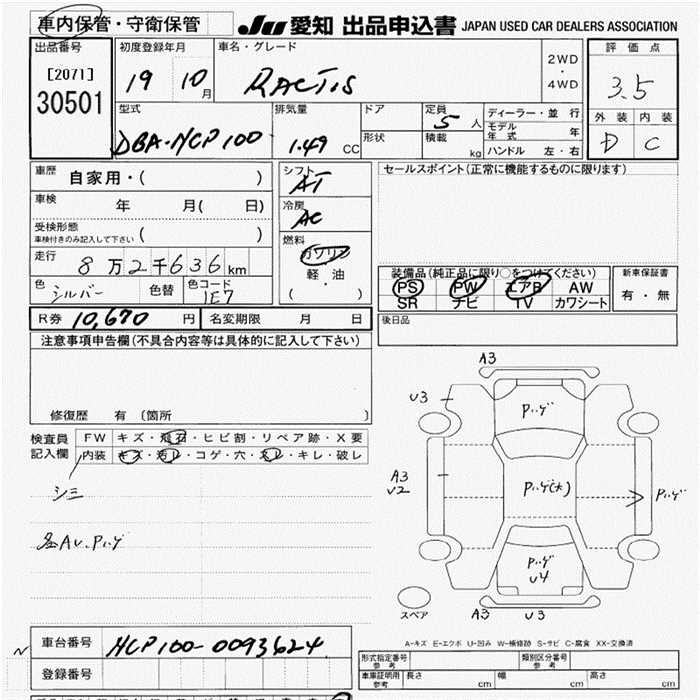 車内保管・守衛保管 JU 愛知 出品申込書 JAPAN USED CAR DEALERS ASSOCIATION
出品番号 初度登録年月 車名・グレード 2WD ・ 4WD 評価点
[2071] 30501 19 10月 RACTIS 3.5
型式 排気量 ドア 定員 5人 ディーラー・並行 外装 内装
DBA-NCP100 1.49 CC 形状 積載 kg モデル年式 年 D C
ハンドル 左・右
車歴 自家用・( ) シフト AT セールスポイント(正常に機能するものに限ります)
車検 年 月( 日) 冷房 AC
受検形態 ( )
車検付きのみ記入して下さい
燃料 ガソリン 軽・油 ( ・ )
走行 8万2千636km
装備品(純正品に限り○をつけてください) 新車保証書
色 シルバー 色替 色コード 1E7 PS PW エアB AW 有・無
SR ナビ TV カワシート
R券 10,670円 名変期限 月 日 後日品
注意事項申告欄(不具合内容等は具体的に記入して下さい)
修復歴 有(箇所 )
検査員記入欄 FW キズ・飛石・ヒビ割・リペア跡・X要
内装 キズ・汚レ・コゲ・穴・スレ・キレ・破レ
シミ
A3
U3
A3
U2
スペア
U4
A3 U3
A-キズ E-エクボ U-凹み W-補修跡 S-サビ C-腐食 XX-交換済
車台番号 NCP100-0093624
登録番号
形式指定番号 参考 類別区分番号 参考
車庫証明用 参考 長さ cm 幅 cm 高さ cm